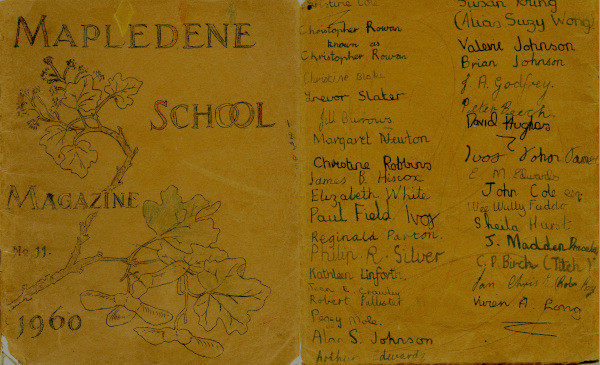 MAPLEDENE
SCHOOL
MAGAZINE
No. 11.
1960
Christine Cole
Christopher Rowan
known as
Christopher Rowan
Christine
Trevor Slater
Jill Burrows
Margaret Newton
Christine Robbins
James B. Hiscox
Elizabeth White
Paul Field Ivor
Reginald Parton.
Philip. R. Silver
Kathleen Linforth.
Crawley
Robert Pallister
Peggy Mole.
Alan S. Johnson
Arthur Edwards
Susan
(Alias Suzy Wong)
Valerie Johnson
Brian Johnson
J. A. Godfrey.
Peter Beech.
David Hughes
Ivor John
E. M. Edwards
John Cole
Wee Wully
Sheila Hurst
J. Madden
C. P. Birch (Titch)
Vivien A. Long